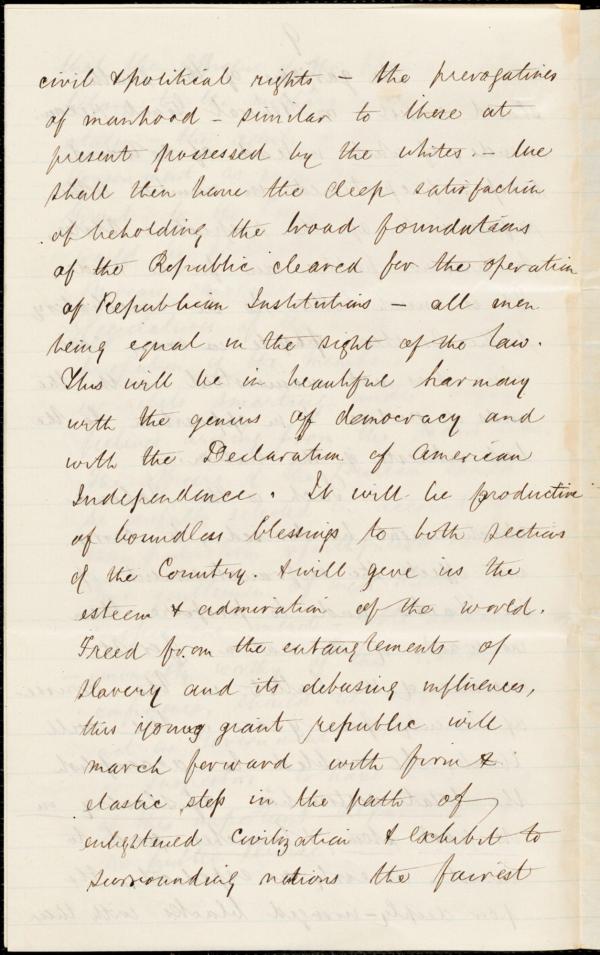 civil & political rights – the prerogatives
of manhood – similar to those at
present possessed by the whites. – We
shall then have the deep satisfaction
of beholding the broad foundations
of the Republic cleared for the operation
of Republican Institutions – all men
being equal in the sight of the law.
This will be in beautiful harmony
with the genius of democracy and
with the Declaration of American
Independence. It will be productive
of boundless blessings to both sections
of the Country. & will give us the
esteem & admiration of the world.
Freed from the entanglements of
slavery and its debasing influences,
this young giant republic will
march forward with firm &
elastic step in the path of
enlightened civilization & exhibit to
surrounding nations the fairest